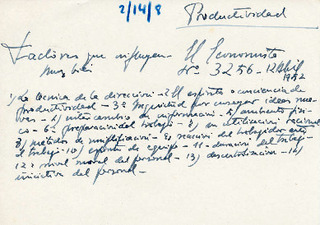 2/14/8
Productividad
Factores que influyen - El Economista
muy bien Nº 3256 - 12 Abril
1952
1) La técnica de la dirección - 2º El espíritu o conciencia de
productividad - 3º Ingenuidad por ensayar ideas nue-
vas - 4) intercambio de información - 5) ambiente físi-
co - 6º preparación del trabajo - 8) su utilización racional
8) métodos de - 9) reacción del trabajador ante
el trabajo - 10) espíritu de equipo - 11 - duración del trabajo -
12) nivel moral del personal - 13) descentralización - 14)
iniciativa del personal -